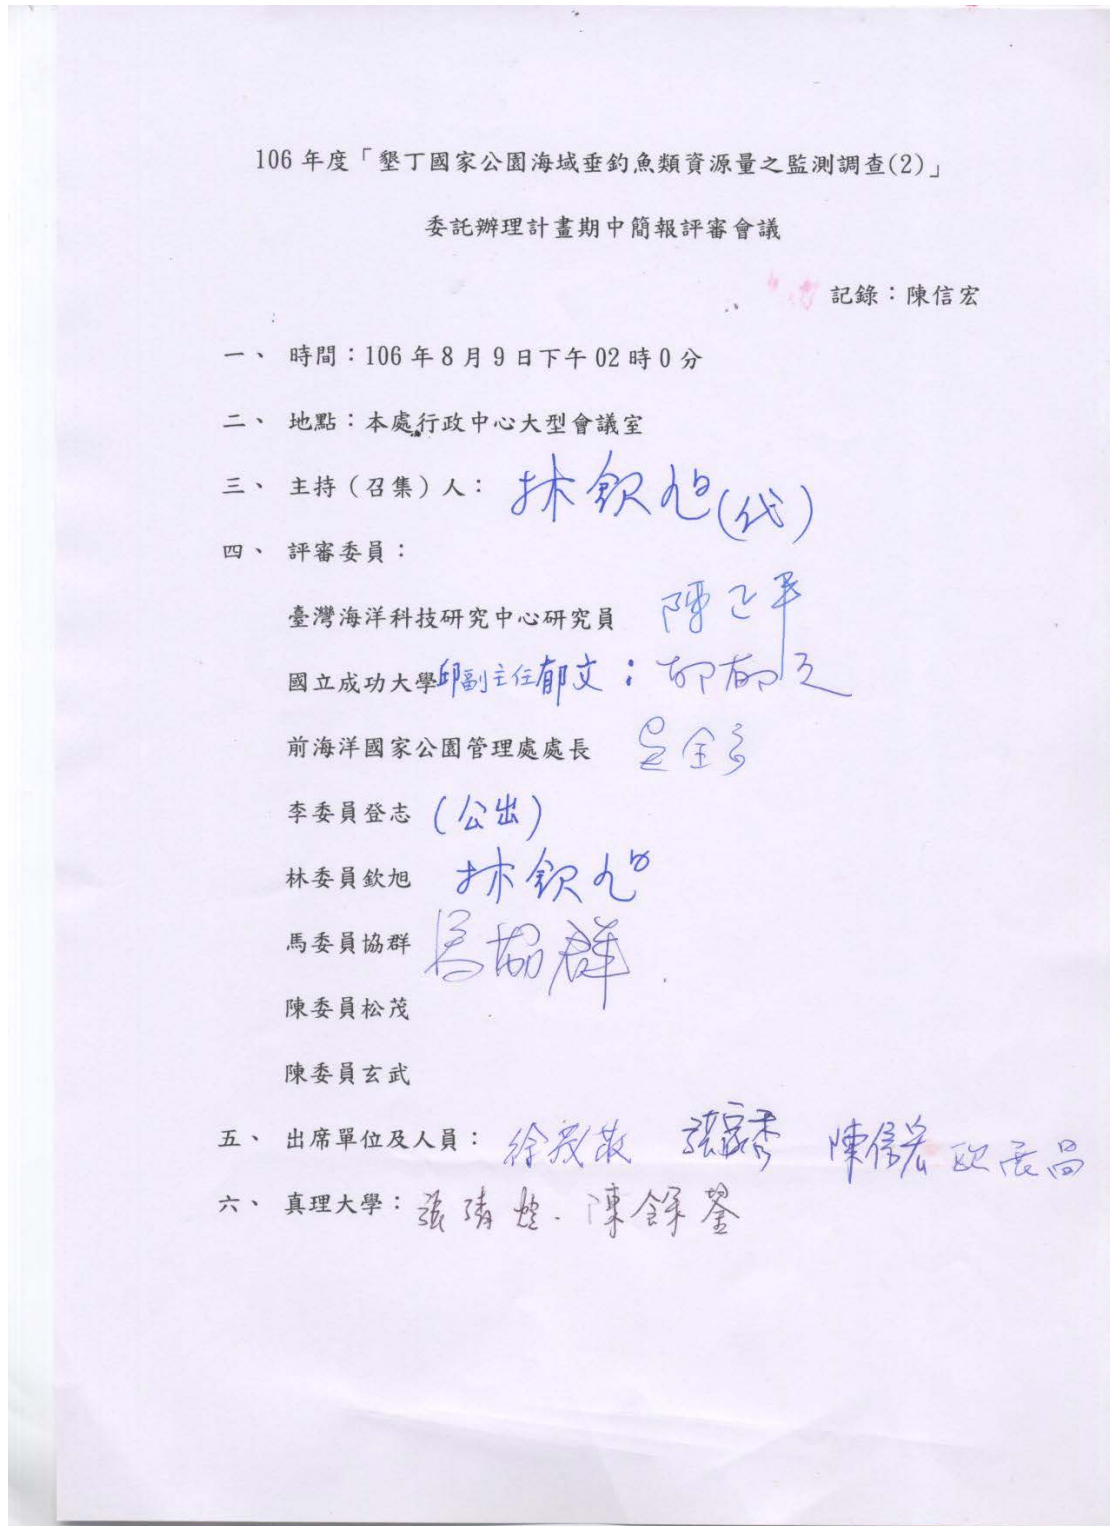 106 年度「墾丁國家公園海域垂釣魚類資源量之監測調查(2)」
委託辦理計畫期中簡報評審會議
記錄：陳信宏
一、 時間：106 年 8 月 9 日下午 02 時 0 分
二、 地點：本處行政中心大型會議室
三、 主持（召集）人： 林欽旭(代)
四、 評審委員：
臺灣海洋科技研究中心研究員 陳正平
國立成功大學邱副主任郁文：邱郁文
前海洋國家公園管理處處長
李委員登志 (公出)
林委員欽旭 林欽旭
馬委員協群 馬協群
陳委員松茂
陳委員玄武
五、 出席單位及人員： 徐茂敬 張家秀 陳信宏
六、 真理大學：陳餘鋆